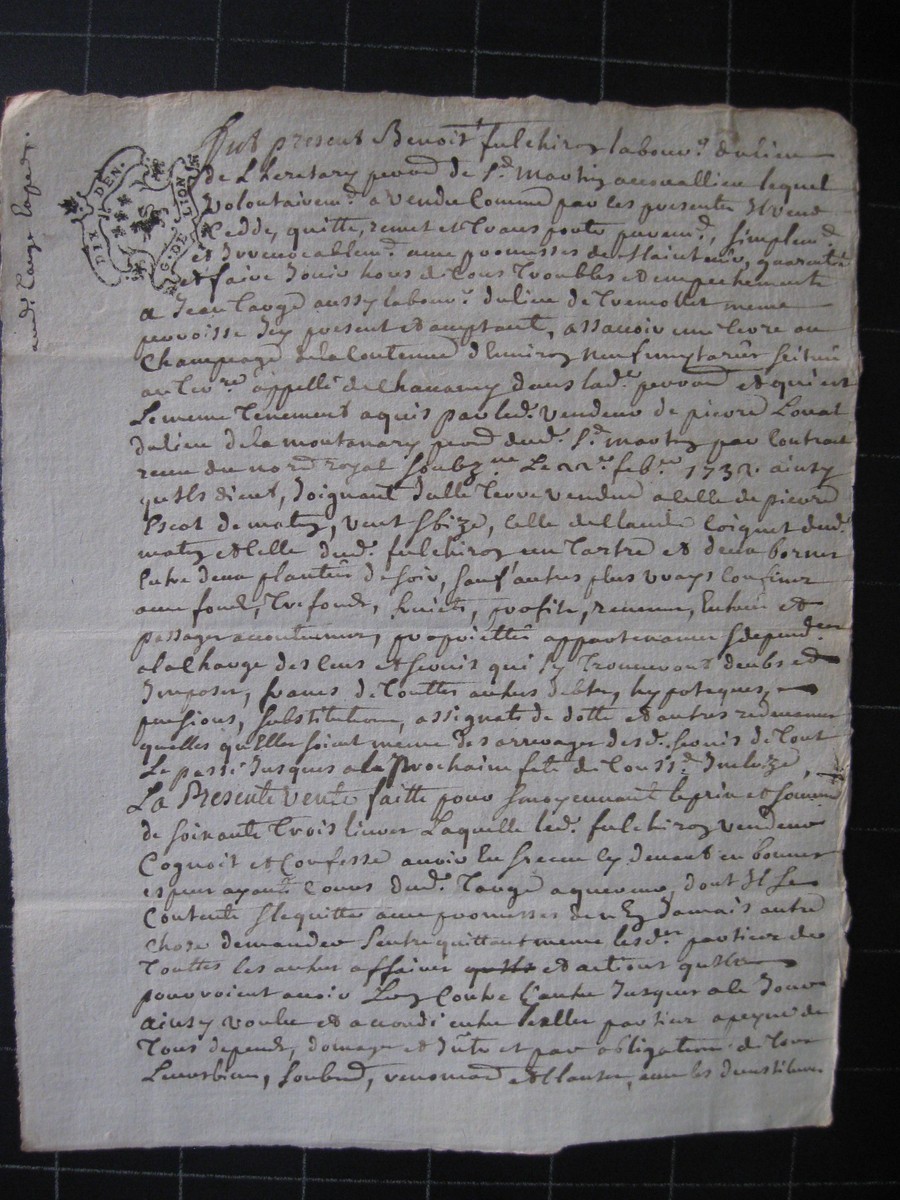 DIX DEN.
G. DE LION
Fut present Benoist fulchiron labour.r du lieu
de Lheretary parr.e de S.t Martin lequel
volontairem.t a vendu comme par les presentes Il vend
Cedde, quitte, remet et transporte purem.t, simplem.t
et Irrevocablem.t avec promesses de Maintenir, garentir
et faire Jouir hors de tous troubles et empechements
a Jean targe aussy labour.r du lieu de tremollet meme
parroisse Icy present et acceptant, assavoir une terre ou
Champeage de la Contenue d'Environ neuf scituée
au terr.re appellé de dans lad.e parr.e et qui est
Le meme tenement aquis par led. vendeur de pierre
du lieu de la montanary par.e dud. S.t martin par Contract
receu du no.re royal soubz.ne Le 22.e feb.r 1732. ainsy
qu'Ils dient, Joignant Icelle terre vendue a celle de pierre
Escot de maten, vent & bize, celle de Claude Coignet dud.
maten et celle dud. fulchiron un tartre et deux bornes
Entre deux plantées de soir, sauf autres plus vrays Confins
avec fonds, trefonds, fruicts, profits, revenus, Entrées et
passages accoutumes, proprietés appartenances & depend.ces
a la Charge des Cens et servis qui s'y trouveront deubs et
Imposes, francs de touttes autres debtes, hypoteques,
pensions, substitutions, assignats de dotte et autres redevances
quelles qu'Elles soient meme des arrerages desd. servis de tout
Le passé Jusques a la prochaine fete de touss.ts Incluze,
La Presente vente faitte pour & moyennant le prix et somme
de soixante trois livres Laquelle led. fulchiron vendeur
Cognoit et Confesse avoir Eu & receu cy devant en bonnes
especes ayant Cours dud. targe aquereur, dont Il se
Contente & le quitte avec promesses de n'En Jamais autre
chose demander s'entrequittant meme lesd.es parties de
touttes les autres affaires et actions qu'Elles
pourroient avoir L'un Contre L'autre Jusques a ce Jour
ainsy voulu et accordé entre Icelles parties a peyne de
tous depends, domages et Ints et par obligation de tous
Leurs biens, soubm.s, renon.on et clauses, avec les